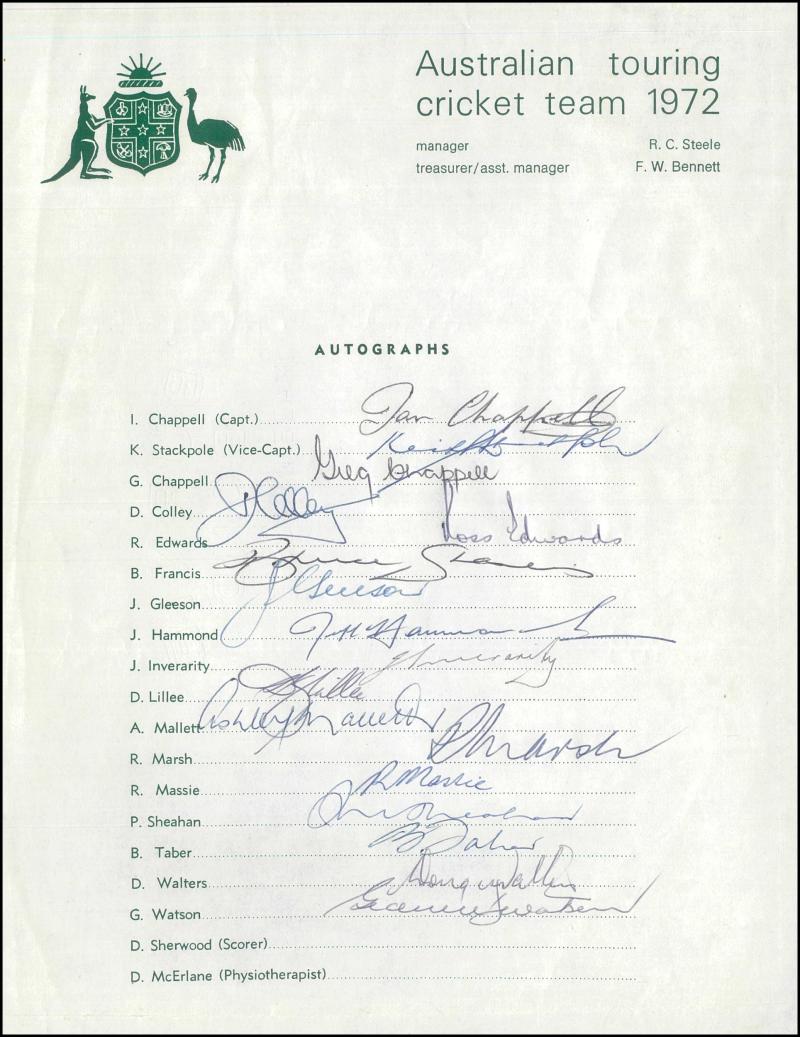 Australian touring
cricket team 1972
manager R. C. Steele
treasurer/asst. manager F. W. Bennett
AUTOGRAPHS
I. Chappell (Capt.) Ian Chappell
K. Stackpole (Vice-Capt.) Keith Stackpole
G. Chappell Greg Chappell
D. Colley D Colley
R. Edwards Ross Edwards
B. Francis Bruce Francis
J. Gleeson J Gleeson
J. Hammond Jeff Hammond
J. Inverarity J Inverarity
D. Lillee D Lillee
A. Mallett Ashley Mallett
R. Marsh R Marsh
R. Massie R Massie
P. Sheahan Sheahan
B. Taber B. Taber
D. Walters Doug Walters
G. Watson Graeme Watson
D. Sherwood (Scorer)
D. McErlane (Physiotherapist)